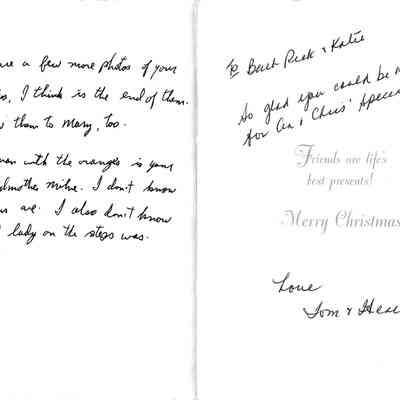 are a few more photos of your
I think is the end of them.
them to Mary, too.
with the oranges is your
I don't know
are. I also don't know
lady on the steps was.
To Rick & Katie
So glad you could be
for & Chris'
Friends are life's
best presents!
Merry Christmas
Love
Tom &